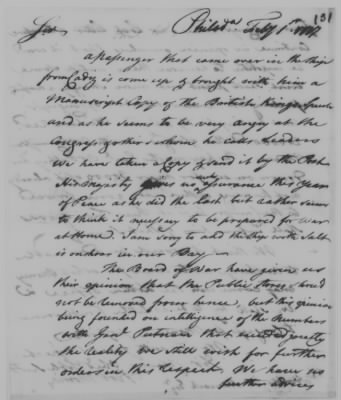 131
Philada Feby 1st 1777
Sir
A passenger that came over in the ship
from Cadiz is come up & brought with him a
Manuscript Copy of the British Kings Speech
and as he seems to be very angry at the
Congress & others whom he calls Leaders
We have taken a Copy & send it by the Post
His Majesty gives us no assurance this year
of Peace as he did the last but rather seems
to think it necessary to be prepared for War
at Home. I am sorry to add the Ship with Salt
is onshore in our Bay
The Board of War have given us
their opinion that the Public Stores shoud
not be removed from hence, but this opinion
being founded on intelligence of the Numbers
with Genl Putnam that exceeded greatly
the reality we still wish for further
orders in this respect. We have no
further advices